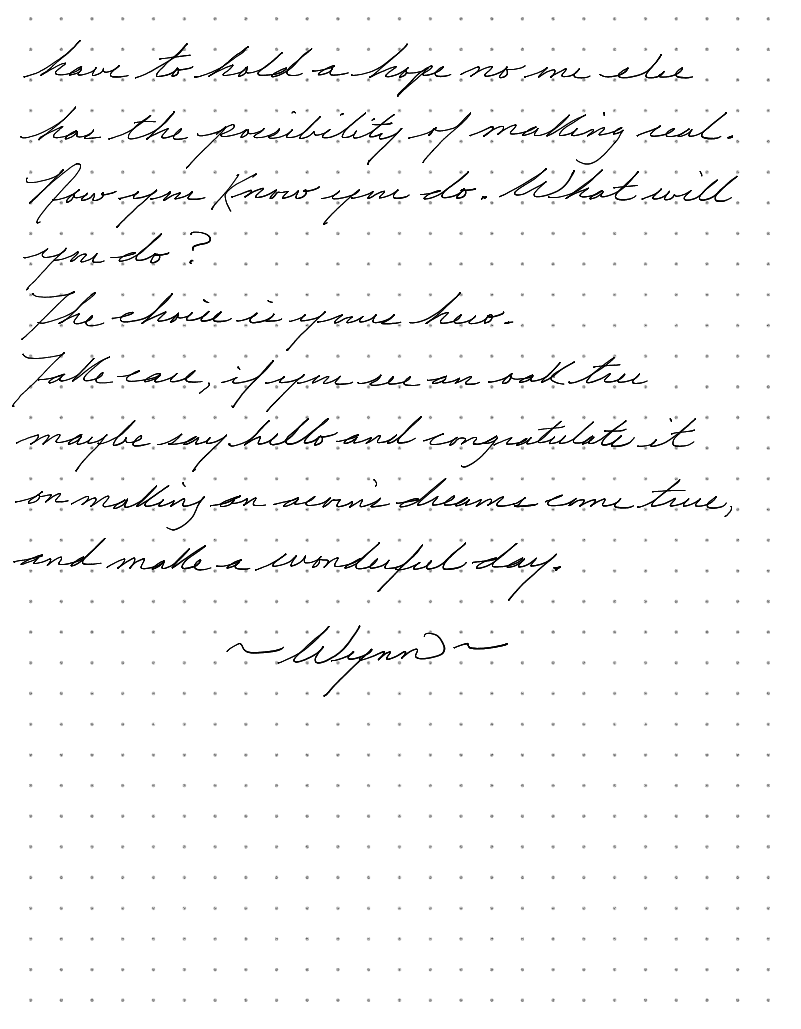 have to hold a hope no one else
has the possibility of making real.
Now you know you do. What will
you do?
The choice is yours hero.
Take care, if you see an oak tree
maybe say hello and congratulate it
on making an acorn's dreams come true,
and make a wonderful day.
~Wynn~